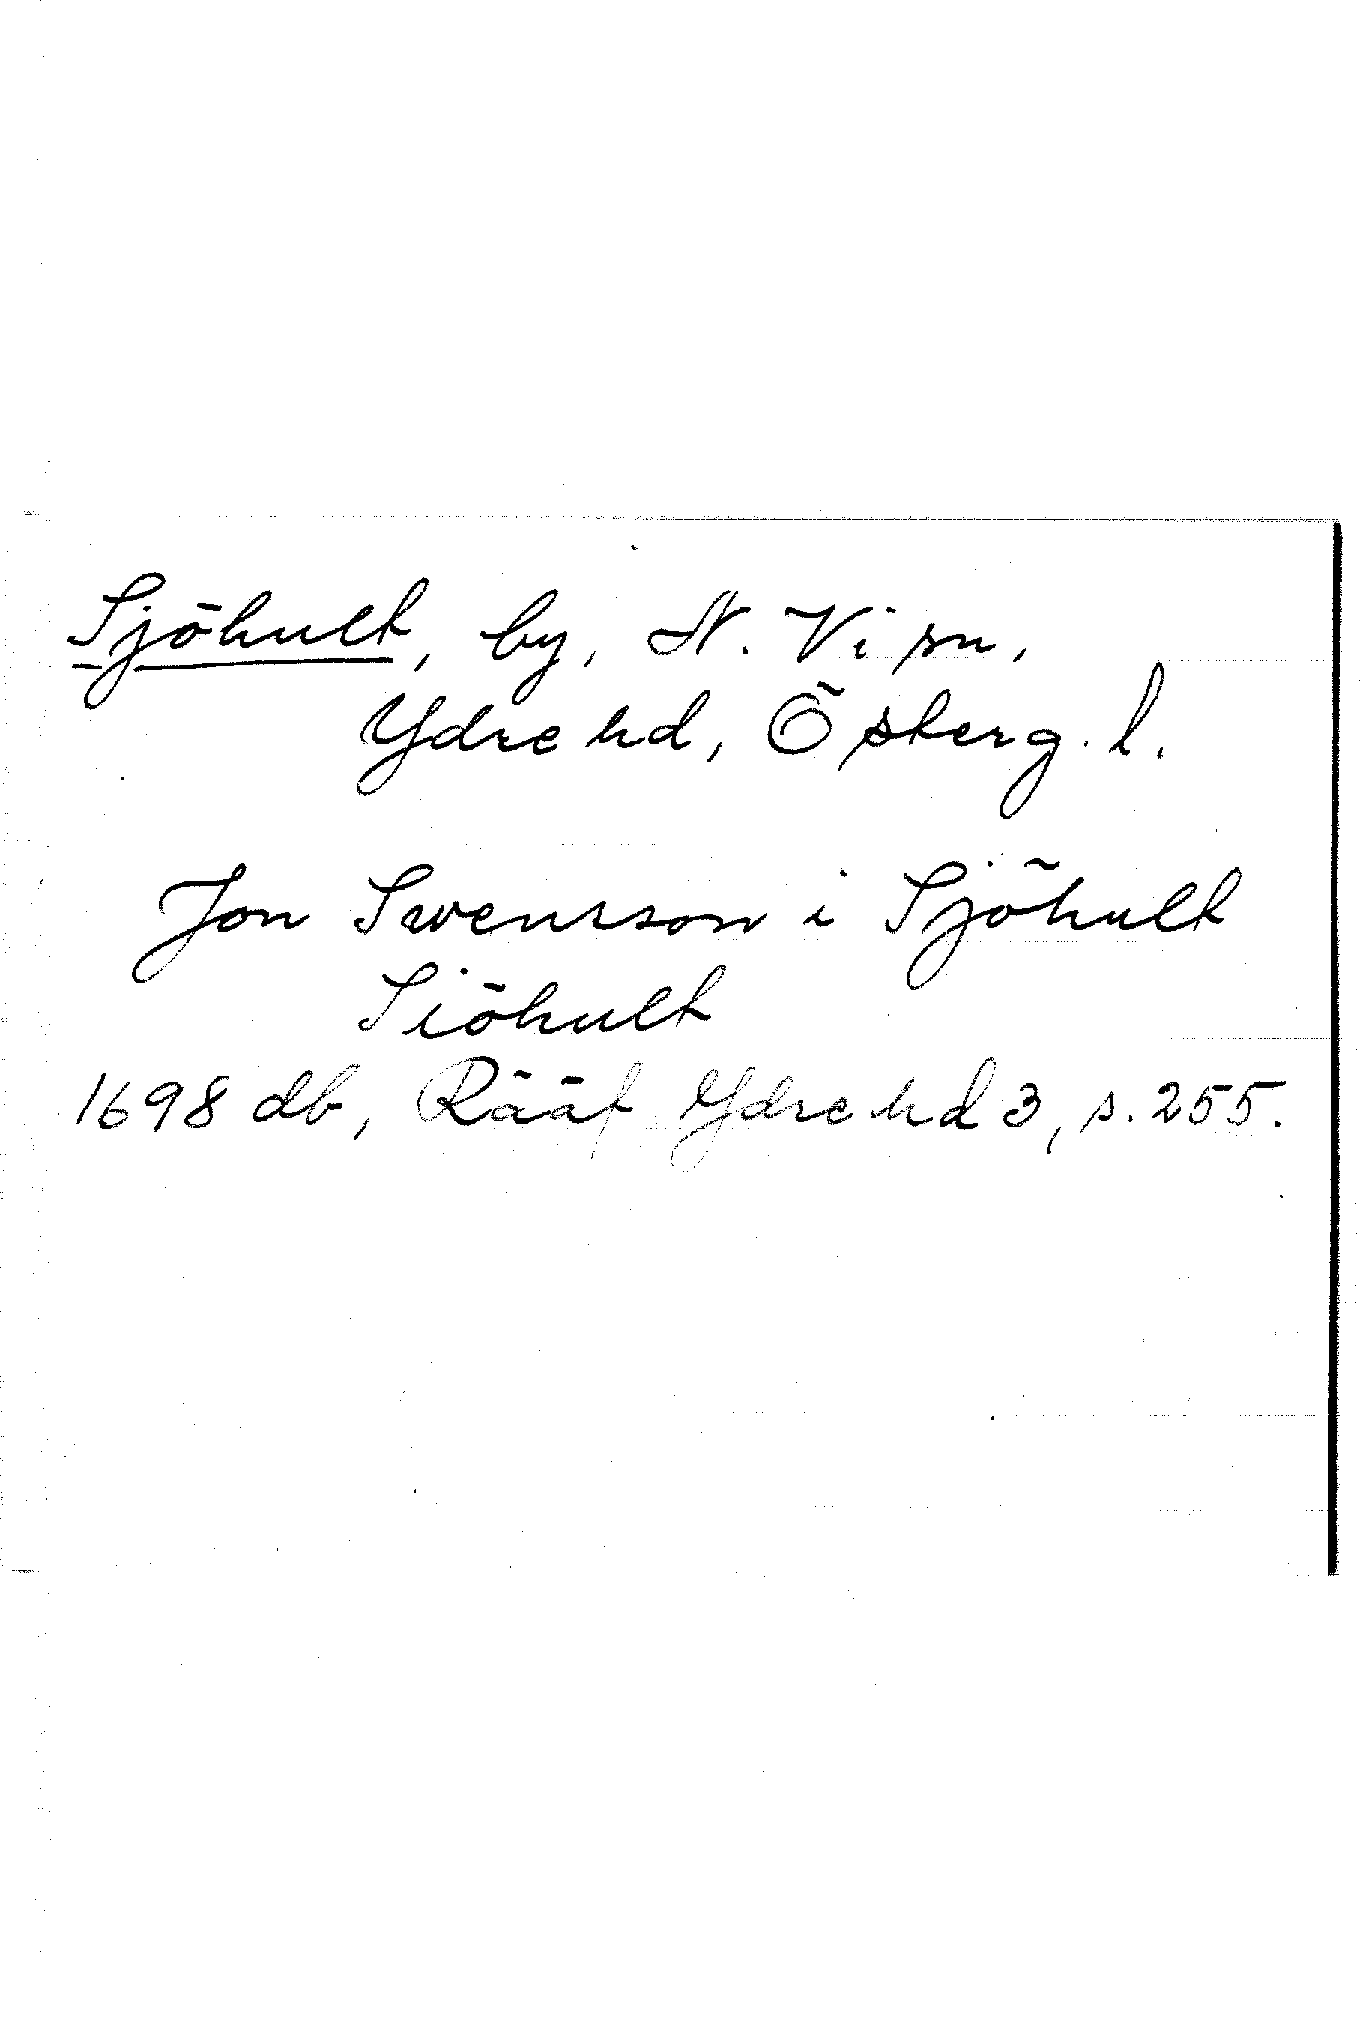 Sjöhult, by, N. Vi sn,
Ydre hd, Österg. l.
Jon Swensson i Sjöhult
Siöhult
1698 db, Rääf Ydre hd 3, s. 255.